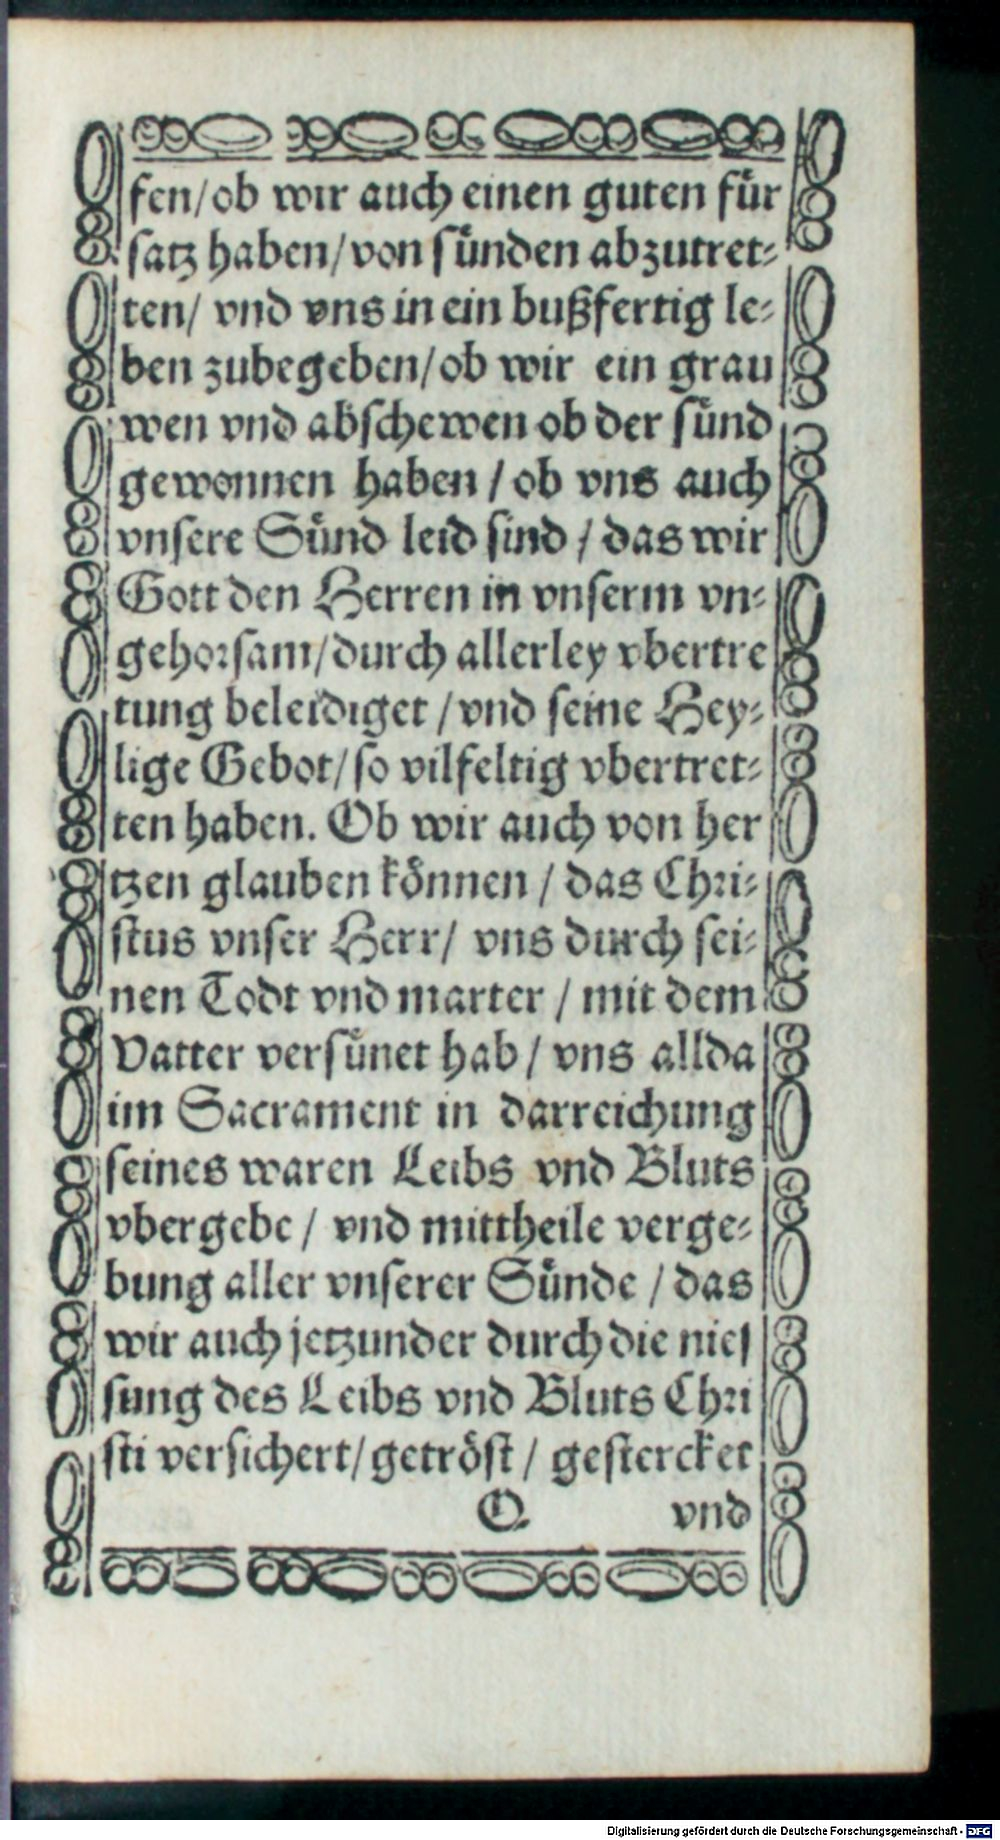 fen/ ob wir auch einen guten für
satz haben/ von sünden abzutret⸗
ten/ vnd vns in ein bußfertig le⸗
ben zubegeben/ ob wir ein grau
wen vnd abschewen ob der sünd
gewonnen haben / ob vns auch
vnsere Sünd leid sind / das wir
Gott den Herren in vnserm vn⸗
gehorsam/ durch allerley vbertre
tung beleidiget / vnd seine Hey⸗
lige Gebot/ so vilfeltig vbertret⸗
ten haben. Ob wir auch von her
tzen glauben können / das Chri⸗
stus vnser Herr/ vns durch sei⸗
nen Todt vnd marter / mit dem
Vatter versünet hab / vns allda
im Sacrament in darreichung
seines waren Leibs vnd Bluts
vbergebe / vnd mittheile verge⸗
bung aller vnserer Sünde / das
wir auch jetzunder durch die nies
sung des Leibs vnd Bluts Chri
sti versichert/ getröst / gestercket
O vnd
Digitalisierung gefördert durch die Deutsche Forschungsgemeinschaft - DFG